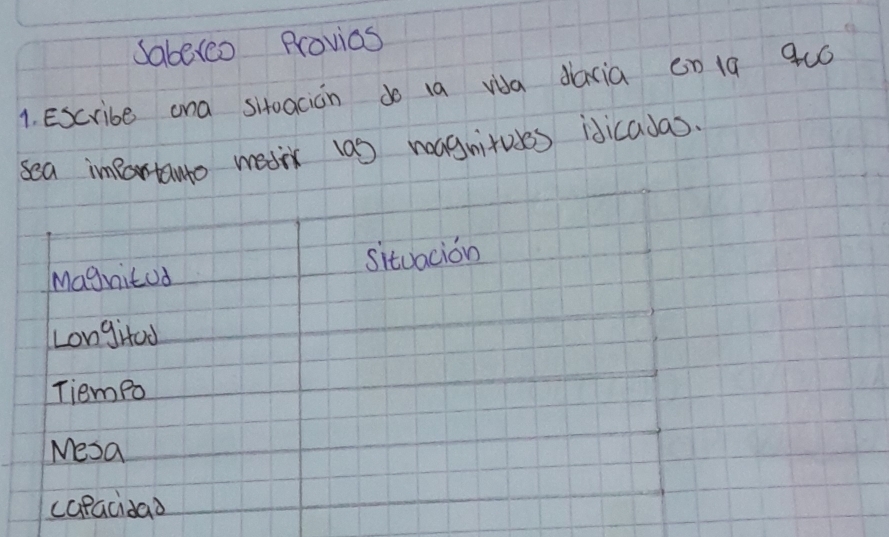 Saberes Previos
1. Escribe una situación de la vida diaria en la que
sea importante medir las magnitudes idicadas.
Magnitud Situación
Longitud
Tiempo
Mesa
capacidad